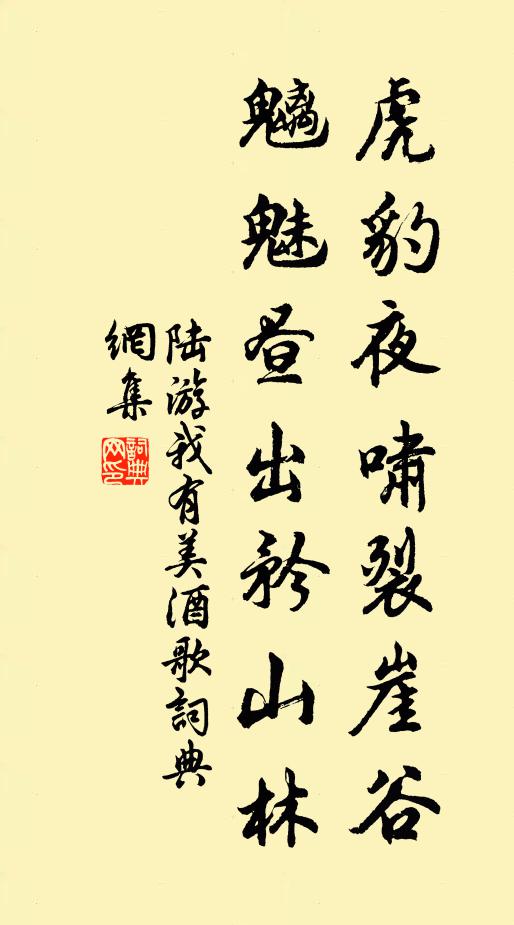 虎豹夜嘯裂崖谷
魑魅昼出矜山林
陆游我有美酒歌詞典
網集
詞典
网印